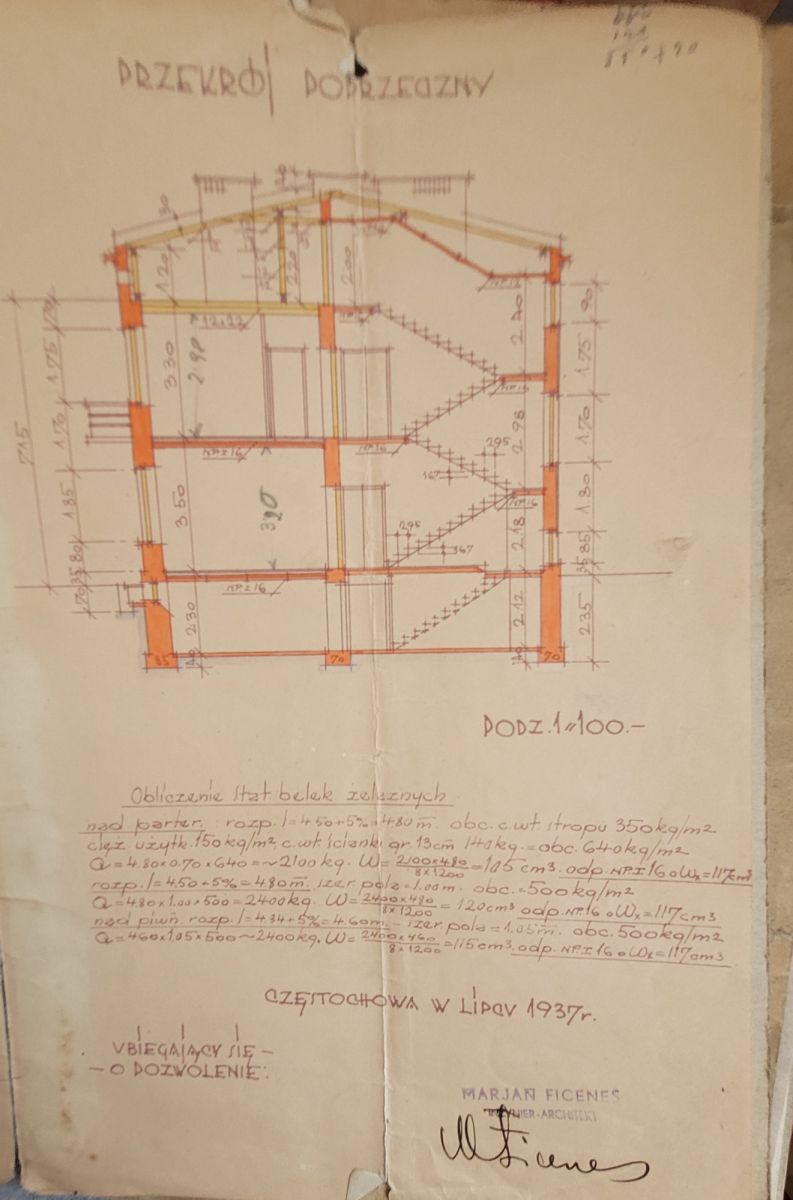 PRZEKRÓJ POPRZECZNY
30
1.20
2.20
2.00
12x22
NP.16
2.40
90
1.75
3.30
2.98
1.75
NP.16
1.70
NP.I 16
NP.16
295
2.98
1.70
715
167
1.85
3.50
320
NP.16
1.80
295
2.18
167
80
35
85
35
NP.I 16
70
2.30
2.12
235
85
70
70
PODZ. 1:100.-
Obliczenie stat belek żelaznych
nad parter. : rozp. l=4.50+5%=4.80m. obc. c.wt stropu 350kg/m2
cięż. użytk. 150kg/m2, c.wt. ścianki gr. 13cm 140kg.= obc. 640kg/m2
Q=4.80x0.70x640=~2100kg. W=2100x480/8x1200=105cm3. odp. NP.I 16 o Wx=117cm3
rozp. l=4.50+5%=4.80m. szer. pola=1.00m. obc.=500kg/m2
Q=4.80x1.00x500=2400kg. W=2400x480/8x1200=120cm3 odp. NP.16 o Wx=117cm3
nad piwn. rozp. l=4.34+5%=4.60m.- szer. pola=1.05m. obc. 500kg/m2
Q=460x1.05x500~2400kg. W=2400x460/8x1200=115cm3. odp. NP.I 16 o Wx=117cm3
CZĘSTOCHOWA W LIPCU 1937r.
UBIEGAJĄCY SIĘ -
- O POZWOLENIE:
MARJAN FICENES
INŻYNIER-ARCHITEKT
M Ficenes